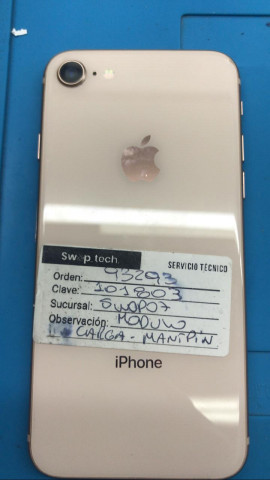 Swap.tech
SERVICIO TÉCNICO
Orden: 93293
Clave: 101803
Sucursal: SWAP07
Observación: MODULO
CARGA - MANIPIN
iPhone